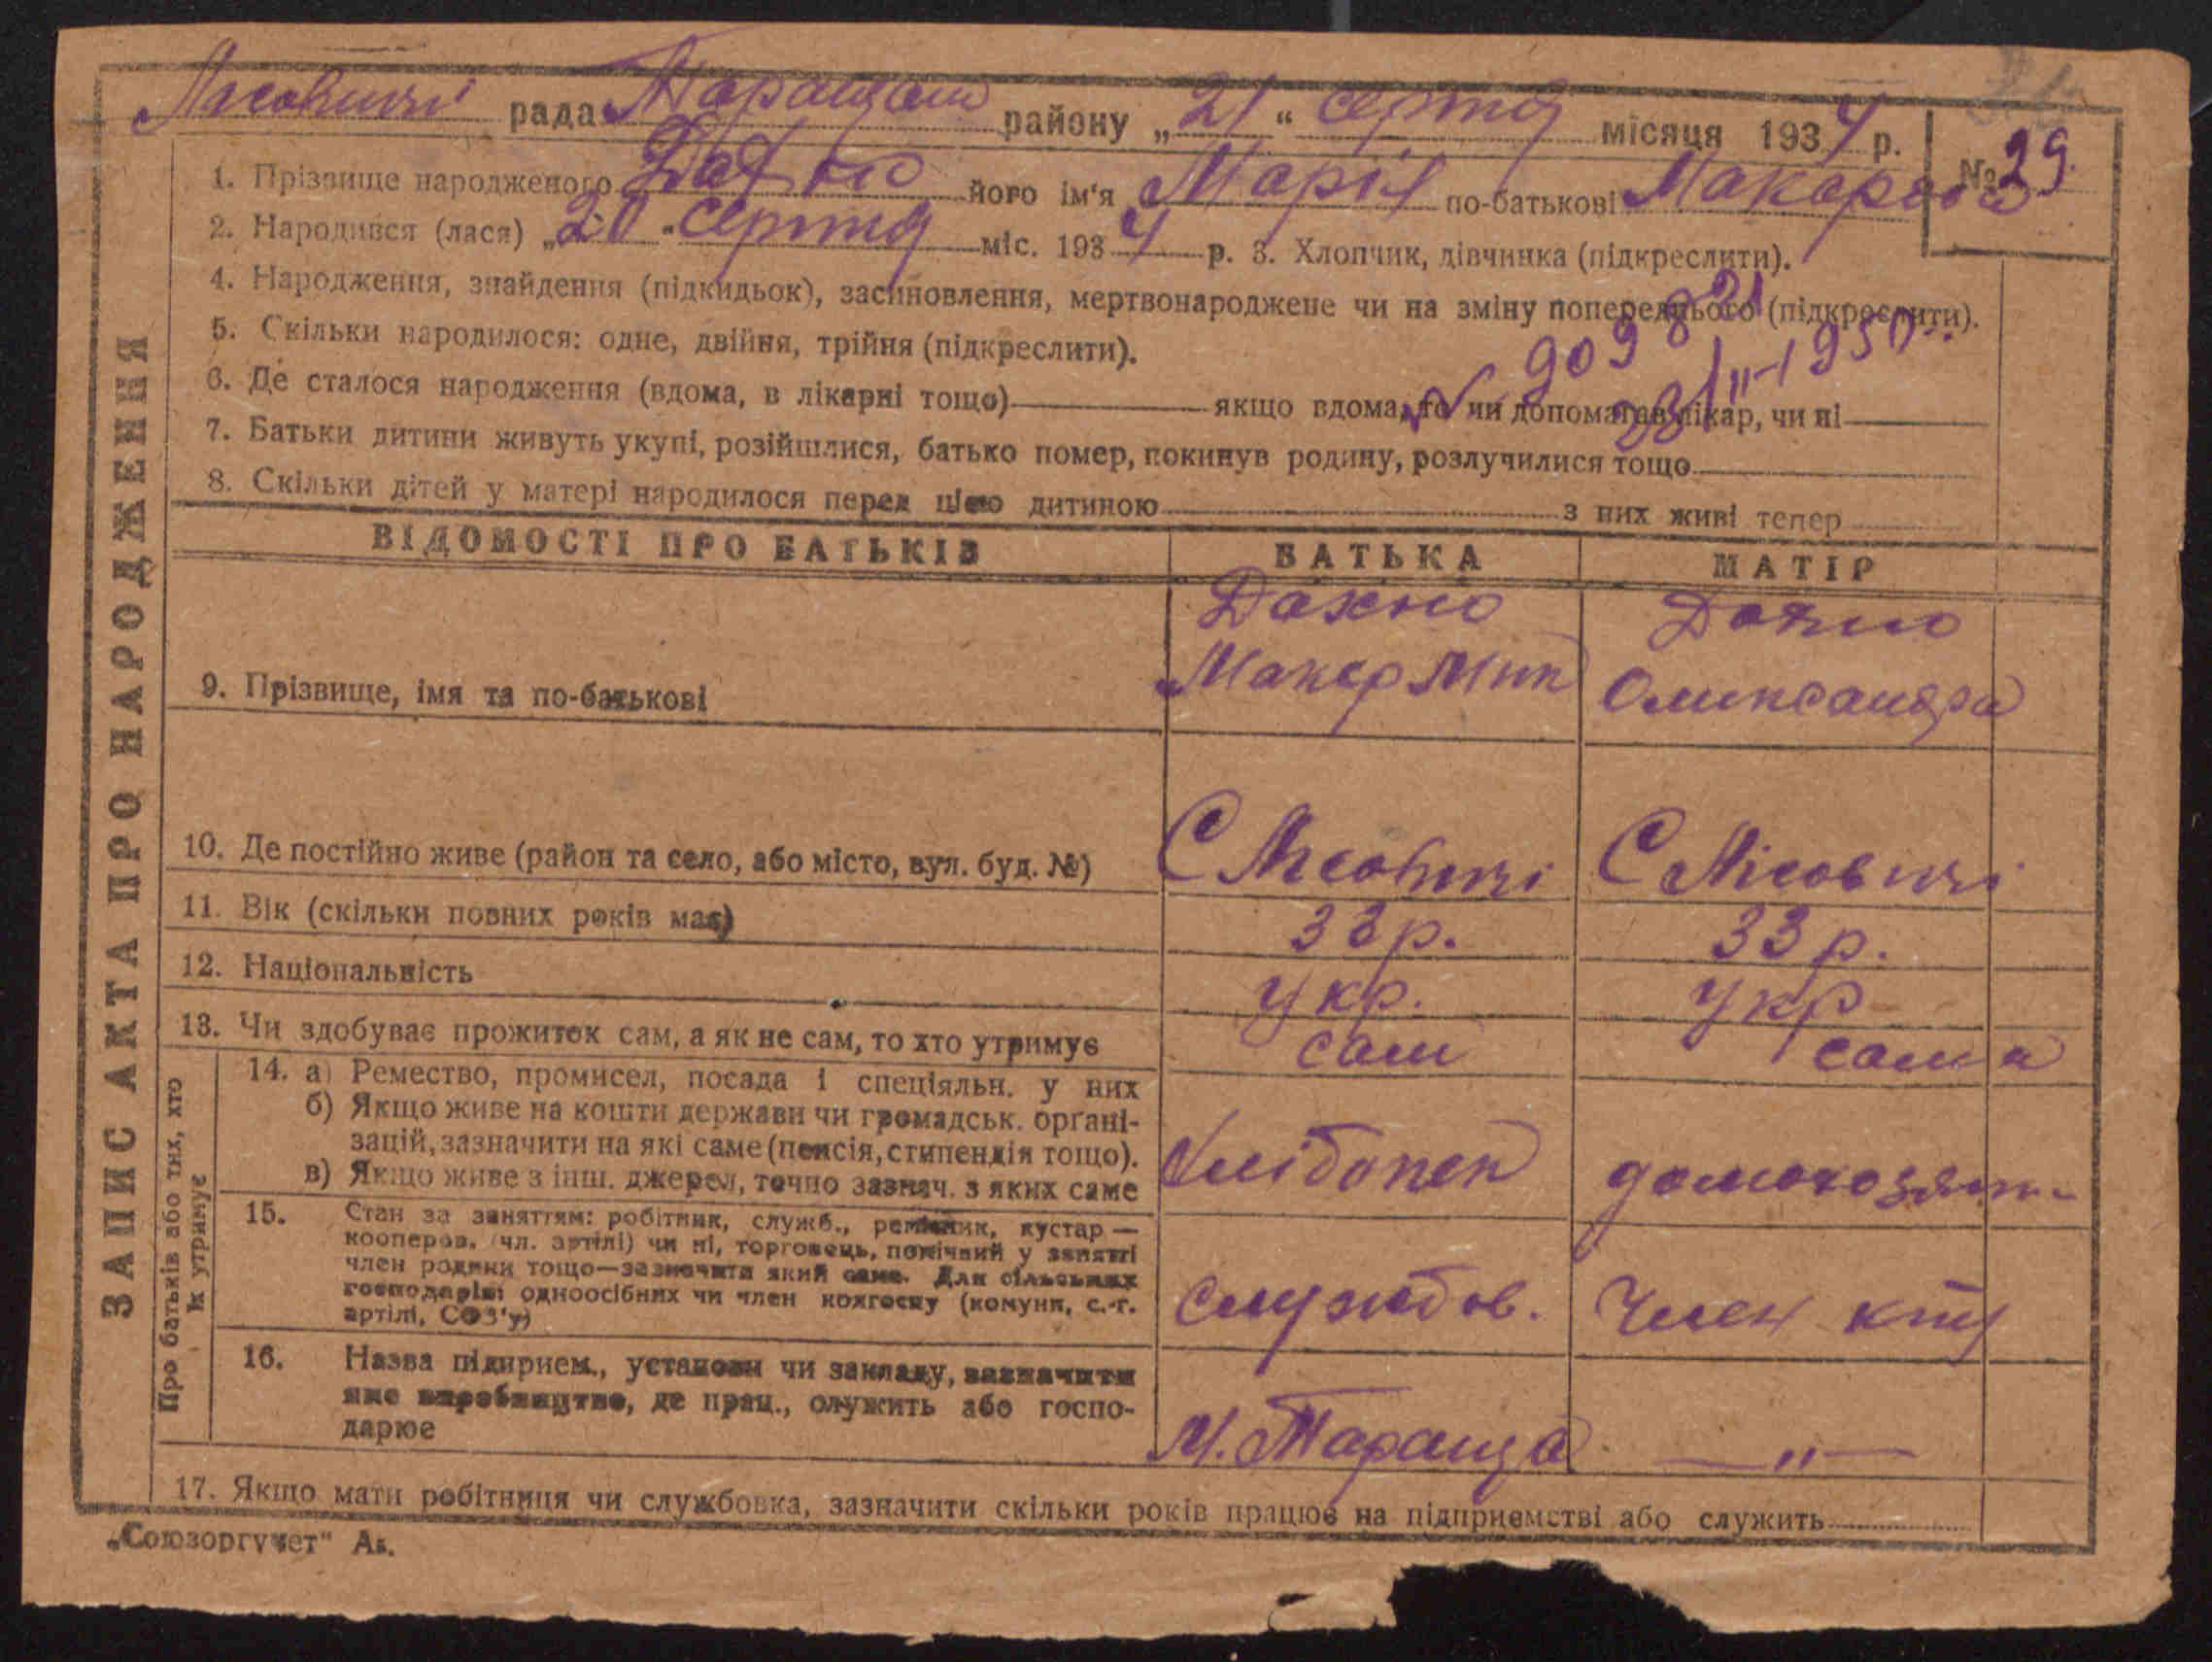 Лісовичі рада Таращан району „21“ серпня місяця 1934 р. № 29.
1. Прізвище народженого Дахно його ім‘я Марія по-батькові Макаровна
2. Народився (лася) „20“ серпня міс. 1934 р. 3. Хлопчик, дівчинка (підкреслити).
4. Народження, знайдення (підкидьок), засиновлення, мертвонароджене чи на зміну попереднього (підкреслити).
5. Скільки народилося: одне, двійня, трійня (підкреслити).
6. Де сталося народження (вдома, в лікарні тощо) якщо вдома, то чи допомагав лікар, чи ні
7. Батьки дитини живуть укупі, розійшлися, батько помер, покинув родину, розлучилися тощо
8. Скільки дітей у матері народилося перед цією дитиною з них живі тепер
ВІДОМОСТІ ПРО БАТЬКІВ БАТЬКА МАТІР
Дахно Дахно
9. Прізвище, імя та по-батькові Макар Мик Олександра
10. Де постійно живе (район та село, або місто, вул. буд. №) С Лісовичі С Лісовичі
11. Вік (скільки повних років має) 33 р. 33 р.
12. Національність Укр. Укр
13. Чи здобуває прожиток сам, а як не сам, то хто утримує сам сама
14. а) Ремество, промисел, посада і спеціяльн. у них
б) Якщо живе на кошти держави чи громадськ. орґані-
зацій, зазначити на які саме (пенсія, стипендія тощо).
в) Якщо живе з інш. джерел, точно зазнач. з яких саме домохозяй-
15. Стан за заняттям: робітник, служб., ремісник, кустар —
кооперов. (чл. артілі) чи ні, торговець, помічний у занятті
член родини тощо—зазначити який саме. Для сільських
господарів: одноосібних чи член колгоспу (комуни, с.-г.
артілі, СОЗ'у) службов. Член
16. Назва підприєм., установи чи закладу, зазначити
яке виробництво, де прац., служить або госпо-
дарює М. Тараща — „ —
17. Якщо мати робітниця чи службовка, зазначити скільки років працює на підприємстві або служить
„Союзоргучет“
ЗАПИС АКТА ПРО НАРОДЖЕННЯ
Про батьків або тих, хто
їх утримує